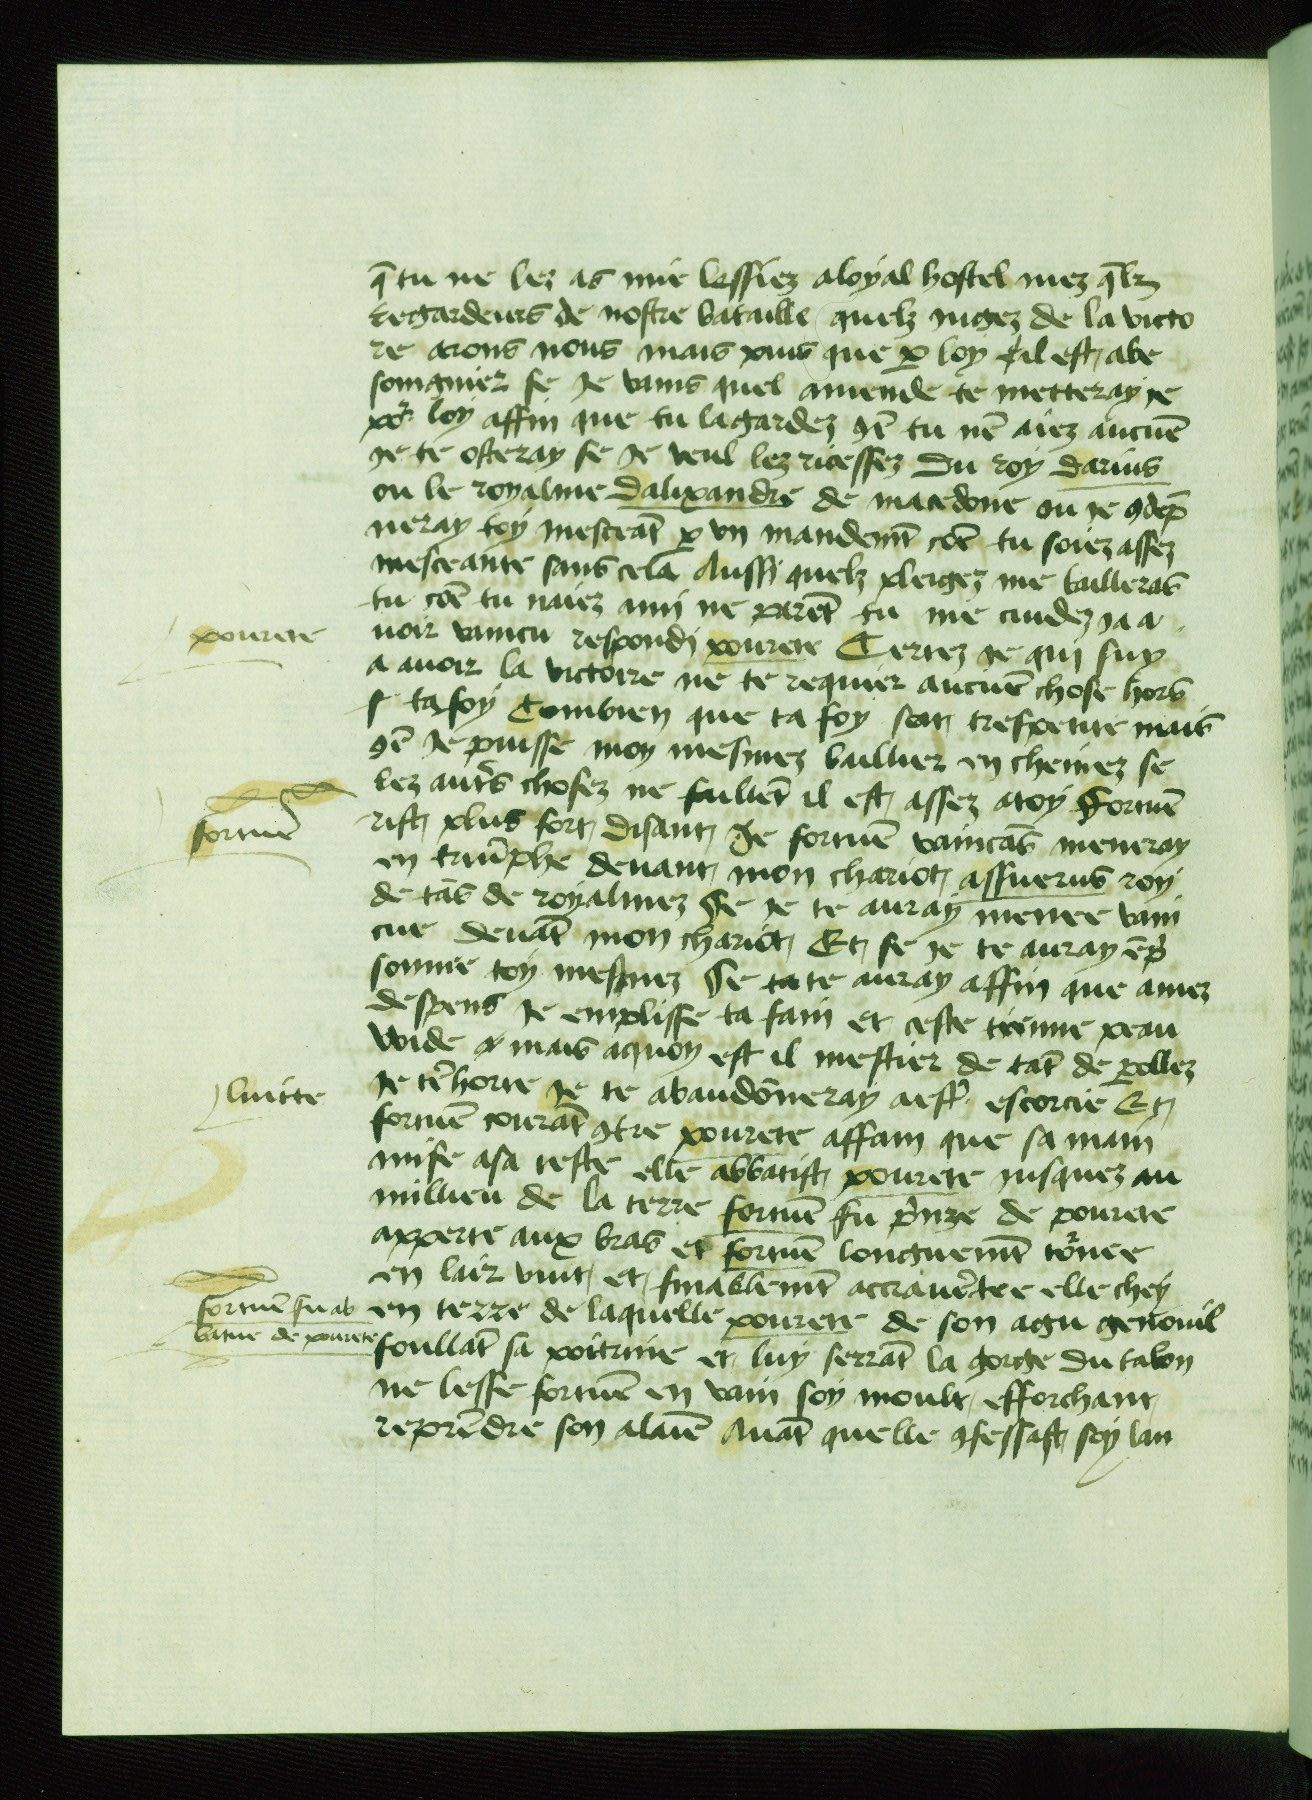 q̄ tu ne lez as mie lessiez a loyal hostel mez q̄lz
regardeurs de nostre bataille quelz iugez de la victo
re arons nous mais puis que p̱ loy cil est abe
songnier se Je vains quel amende te metteray ie
po᷑ loy affin que tu la gardez 9e᷑ tu nē aiez aucuē
Je te osteray se Je veul lez ricessez du roy darius
ou le royalme dalixandre de macedone ou ie 9dēp
neray toy mesceāt p̱ vn mandemt̄ cōe tu soiez assez
mesceante sans cela Aussi quelz pleigez me bailleras
tu cōe tu naiez ami ne parēt tu me cuidez ia a
pourete
uoir vaincu respondi pourete Certez ie qui suy
a auoir la victoire ne te requier aucuē chose hors
ta foy Combien que ta foy soit trespetite mais
9e᷑ Je puisse moy mesmez baillier en cheinez se
lez aut᷑s chosez ne faillēt il est assez a toy Fortuē
fortuē
rist plus fort disant Je fortuē vaincās meneray
en triūphe deuant mon chariot assuerus roy
de tās de royalmez Se ie te auray menee vain
cue deuāt mon chariot Et se ie te auray ēp᷑
sonnee toy mesmez Se ta te auray affin que a mez
despens Je emplisse ta fain et ceste tienne peau
wide mais a quoy est il mestier de tāt de p̱ollez
luitte
Je tē horte Je te abandōneray a est᷑ escorcie Et
fortuē courāt 9tre pourete affain que sa main
mise a sa teste elle abbatist pourete iusquez au
millieu de la terre fortuē fu p᷑nze de pourete
apperte aux bras et fortuē longuemt̄ to᷑nee
en lair vint et finablemt̄ accrauētee elle chey
fortuē fu ab
batue de pourete
en terre de laquelle pourete de son agu genouil
foullāt sa poitrine et luy serrāt la gorge du talon
ne lesse fortuē en vain soy moult efforchant
reprēdre son alaīe Auāt quelle 9fessast soy lan